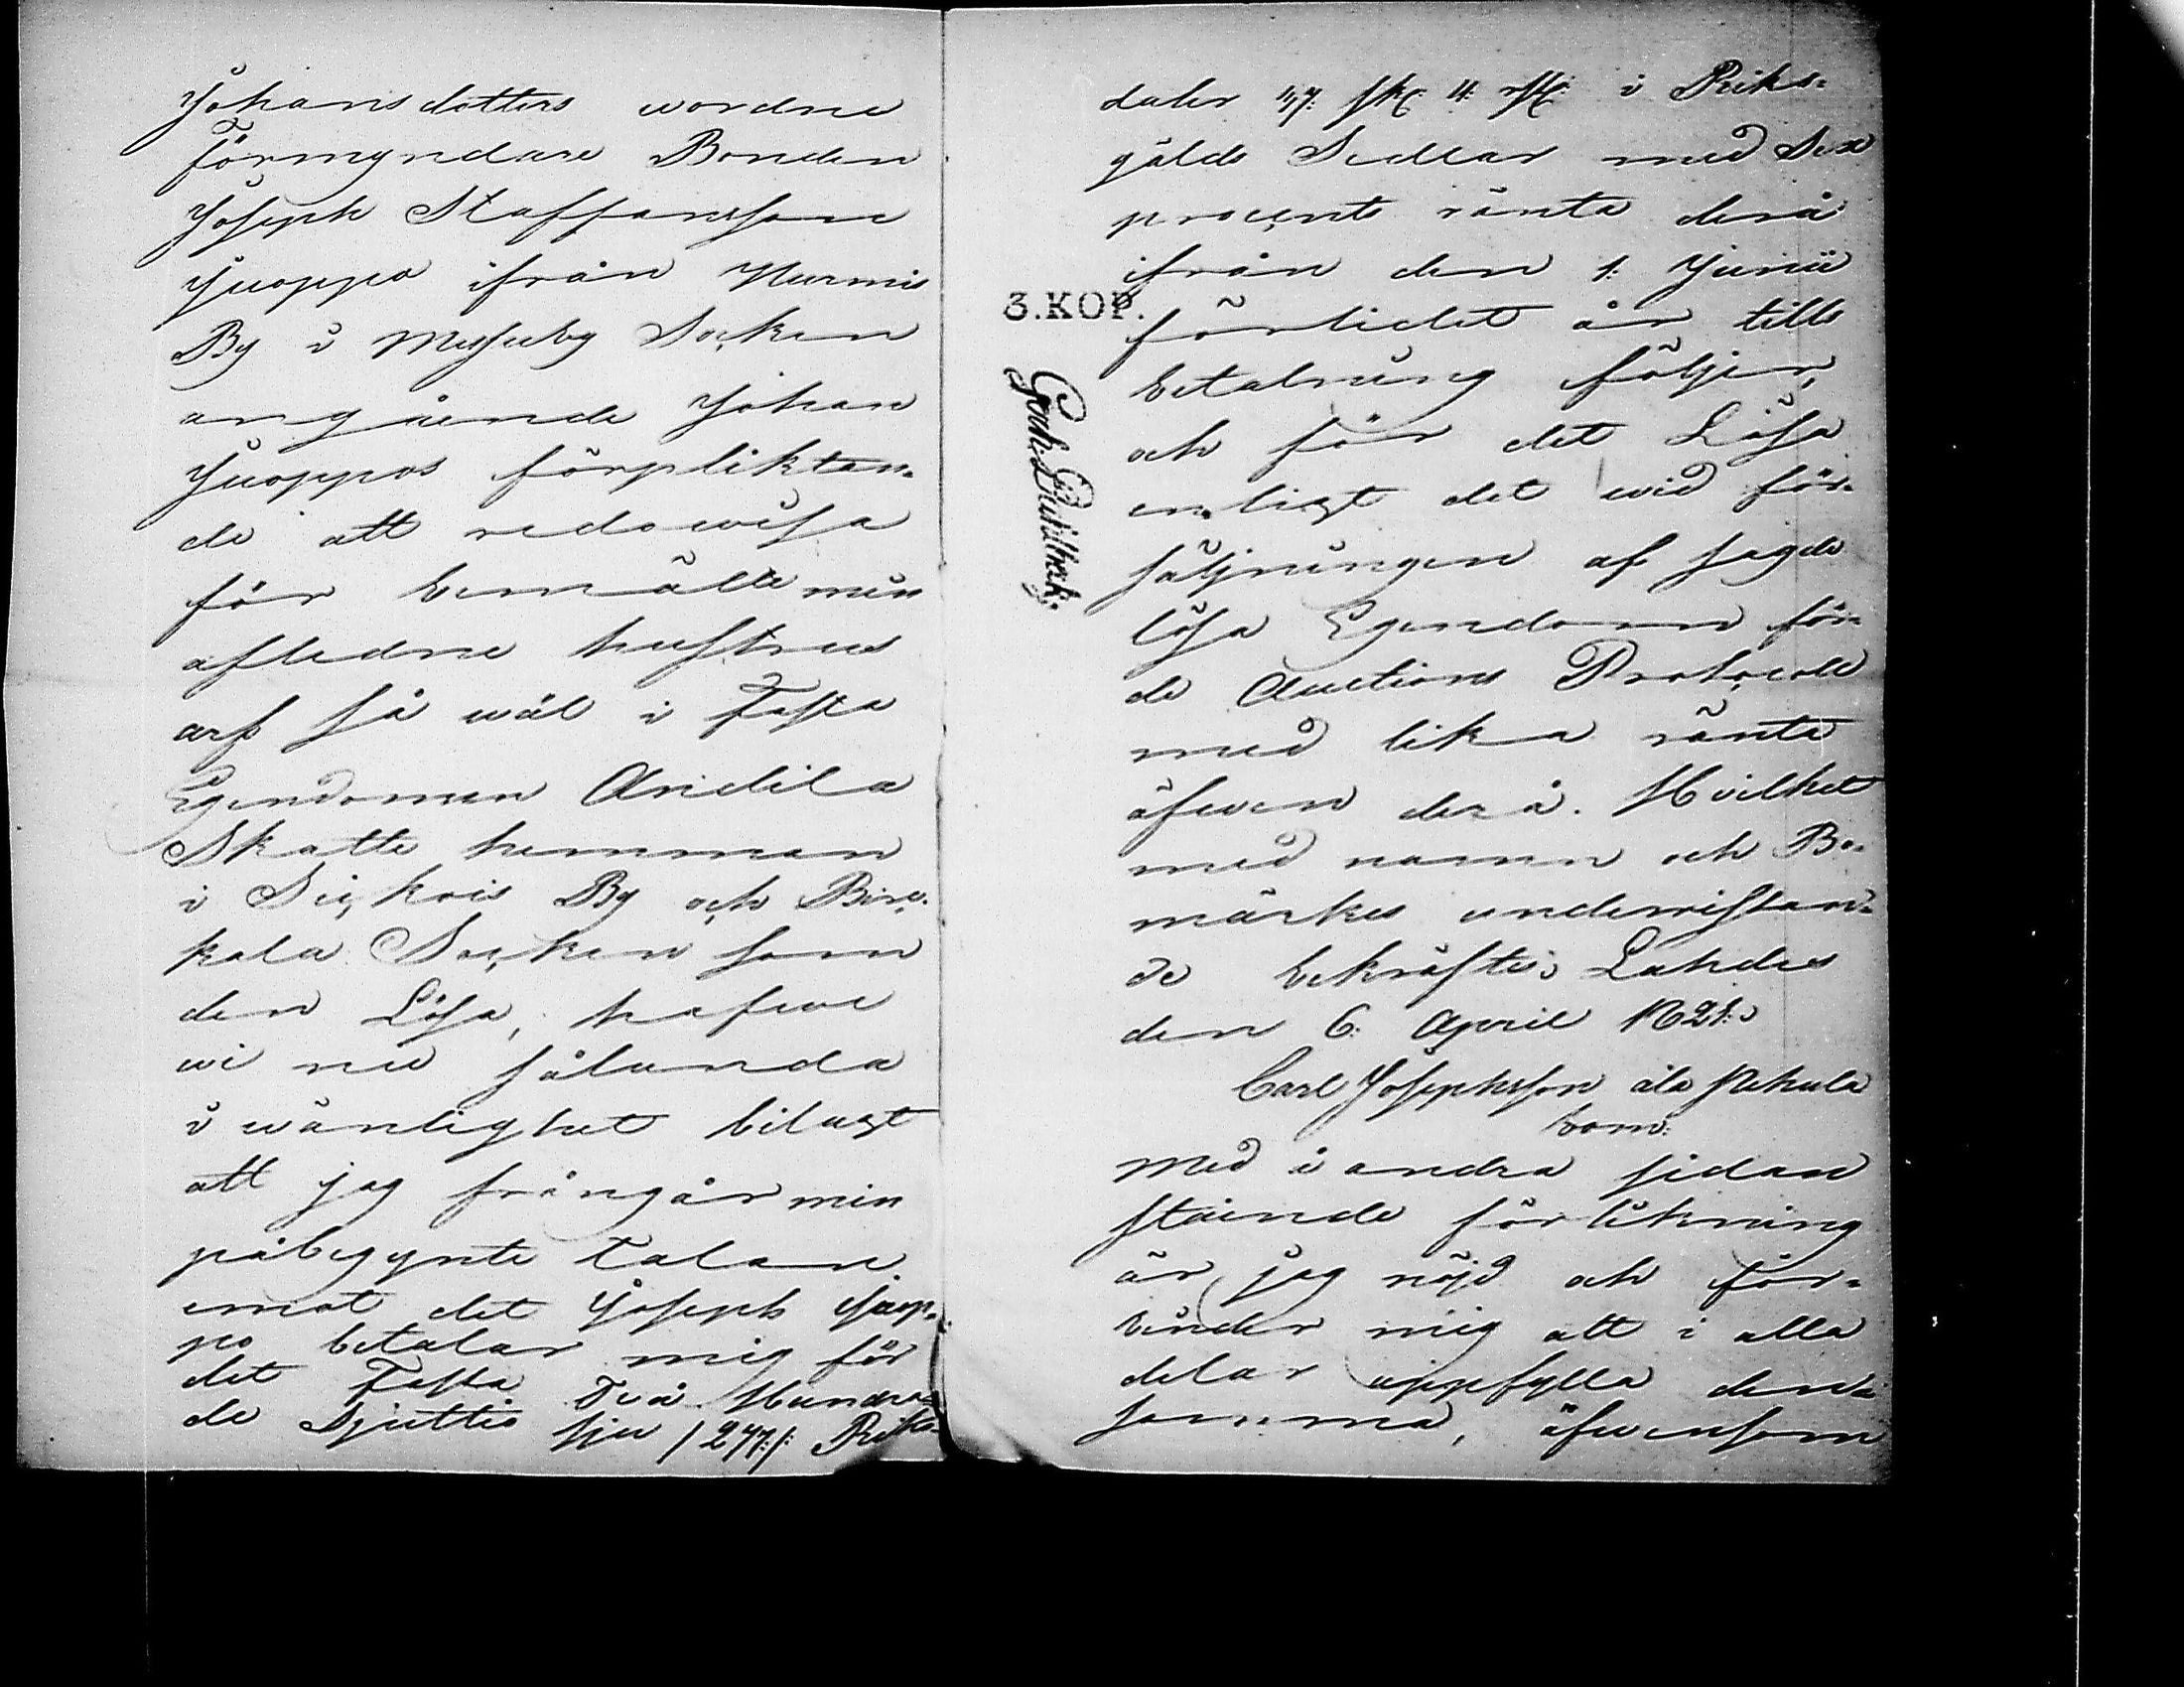 Johansdotters wordne
Förmyndare Bonden
Joseph Staffansson
Juoppo ifrån Nurmis
By i Messuby Socken
angående Johan
Juoppos förplikten-
de att redowisa
för bemälte min
afledne hustrus
arf så wäl i Fasta
Egendomen Andila
Skatte hemman
i Siukois By och Birc-
kala Socken som
den Lösa, hafwe
wi nu sålunda
i wänlighet bilagt
att jag frångår min
påbegynte talan
emot det Joseph Juop-
po betalar mig för
det Fasta Två Hundra-
de Sjuttio sju /277:/: Riks-
daler 47: sk: 4: rst: i Riks-
gälds Sedlar med Sex
procents ränta derå
ifrån den 1: Junii
förlidet år tills
betalning följer,
och för det Lösa
enligt det wid för-
säljningen af sagde
lösa Egendom för-
de Auctions Protocoll
med lika ränta
äfwen derå. Hvilket
med namn och Bo-
märkes underristan-
de bekräftes, Lahdes
den 6: April 1821:
Carl Josephsson ala Pehula
bom:
Med å andra sidan
stående förlikning
är jag nöjd och för-
binder mig att i alla
delar uppfylla den-
samma, äfwensom
3.KOP.